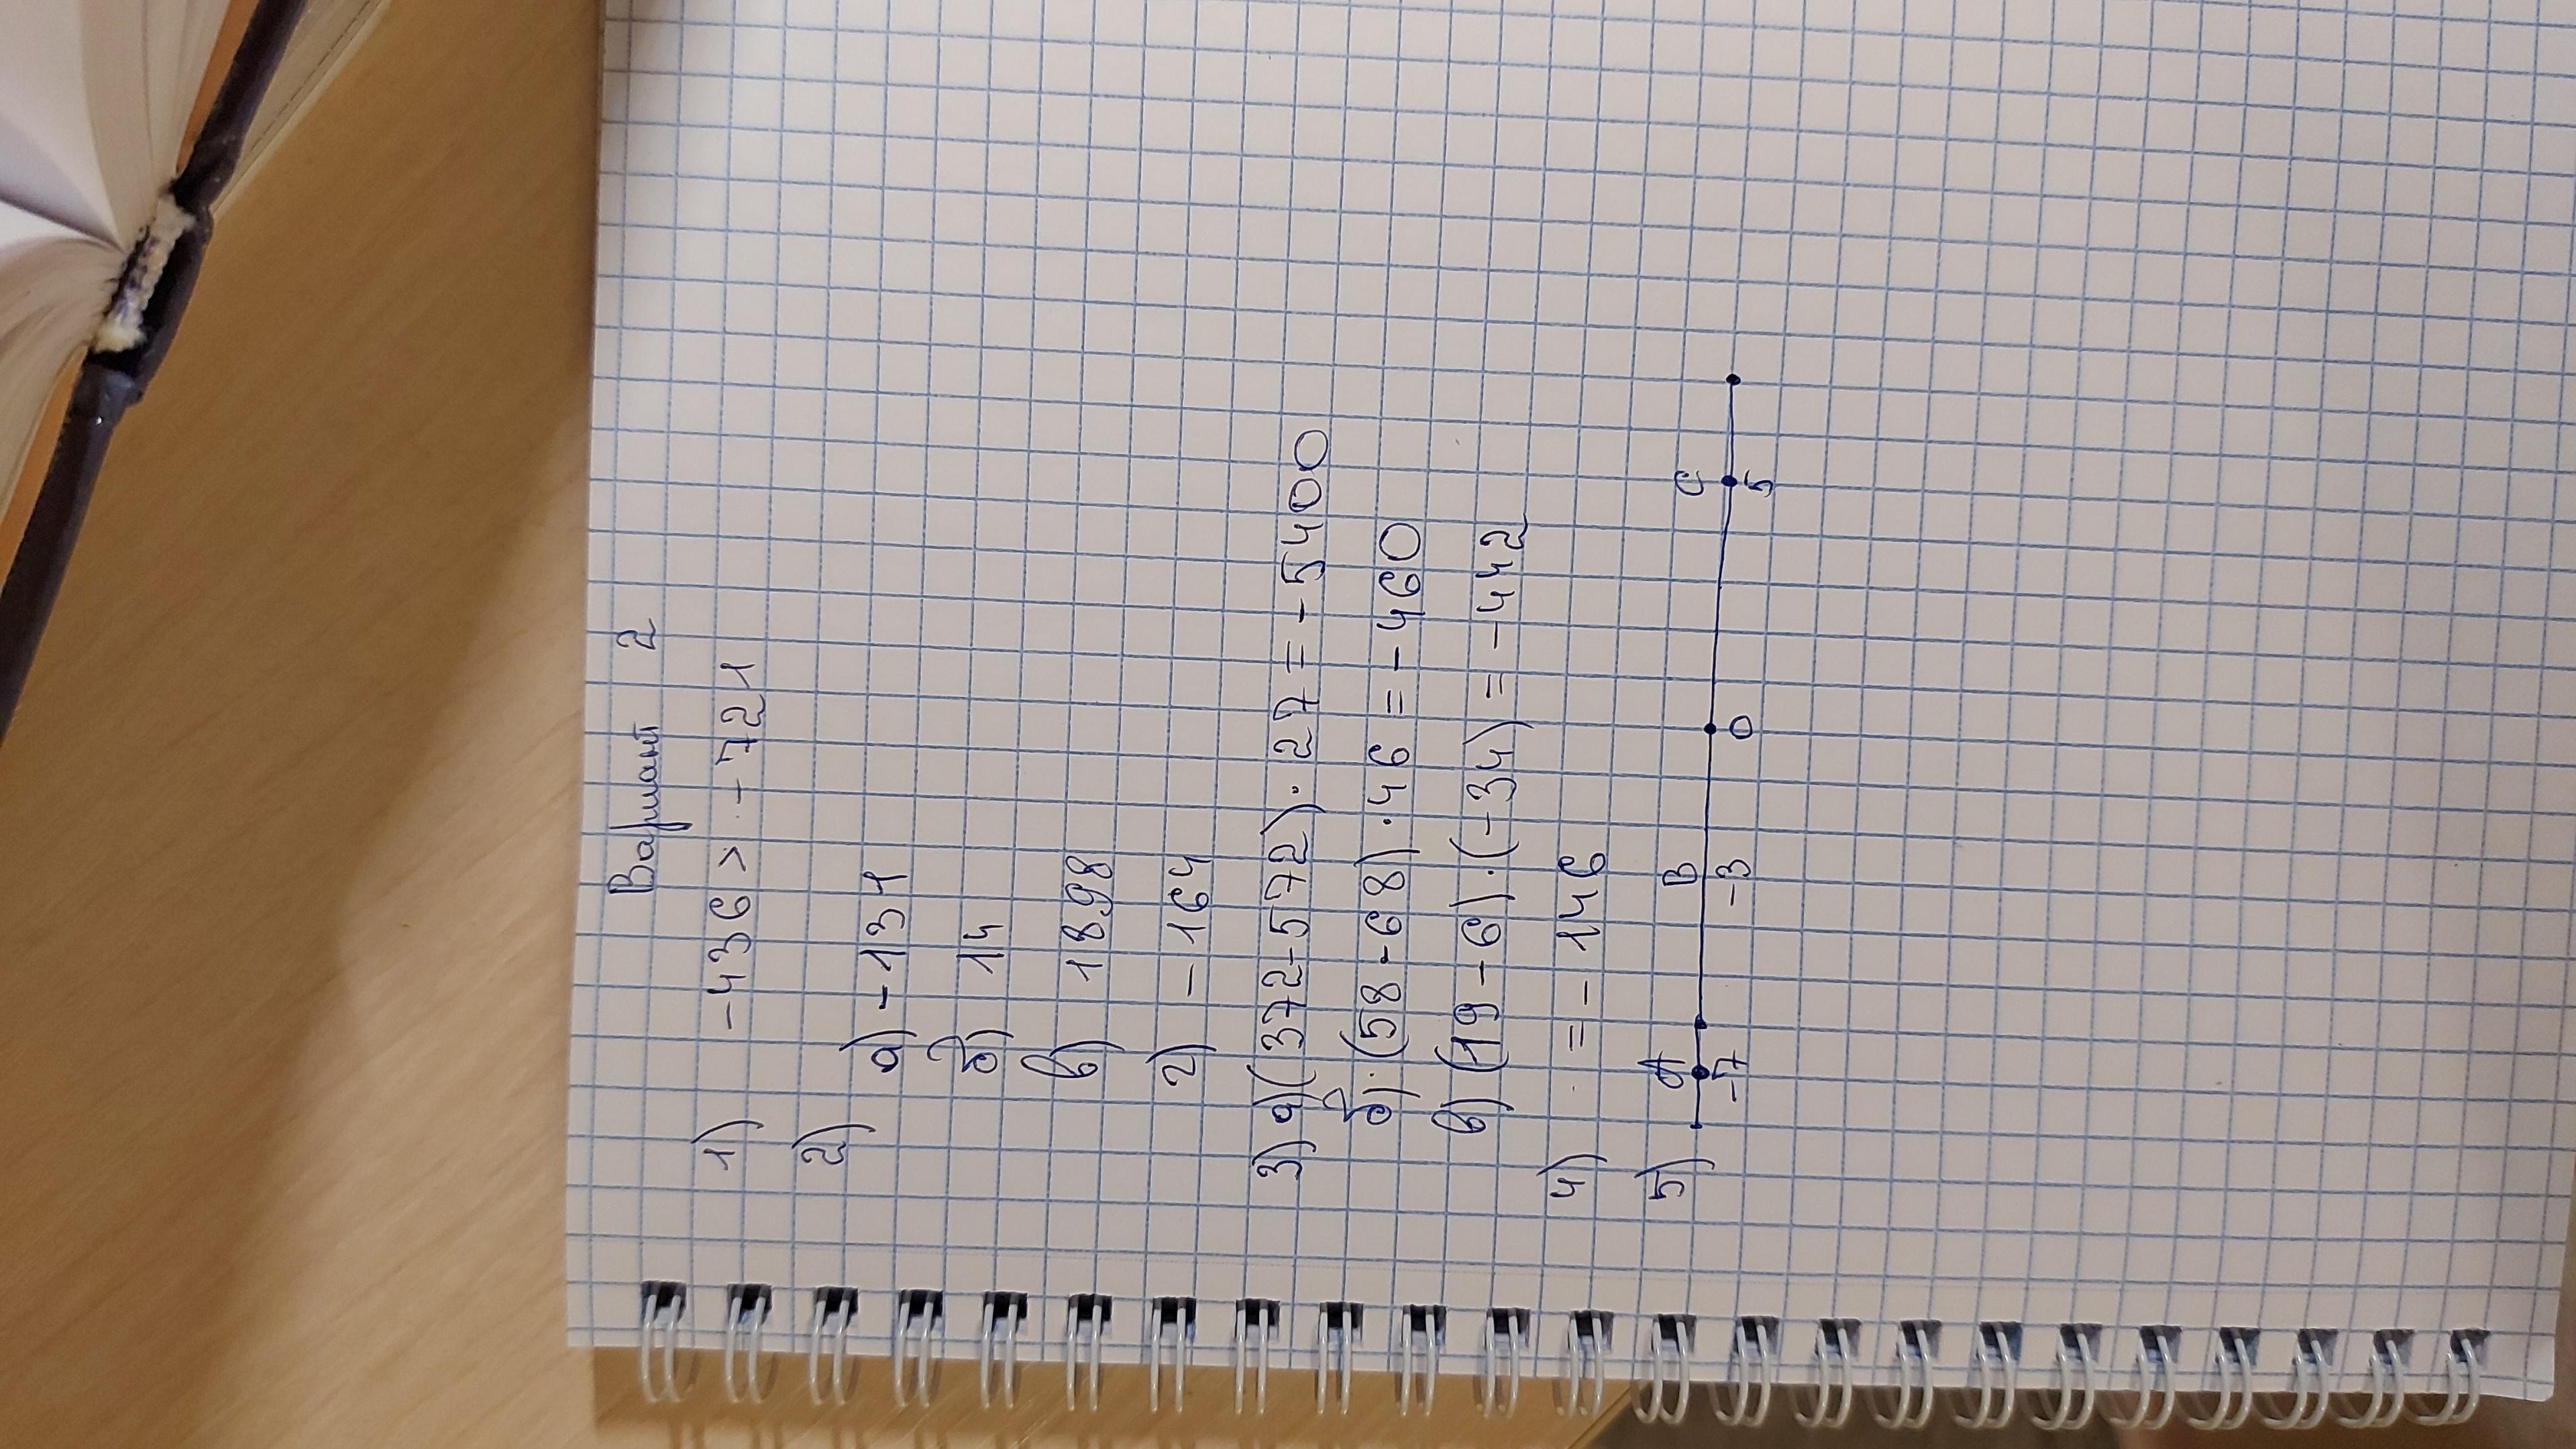 Вариант 2
1) -436 > -721
2)
а) -131
б) 14
в) 1898
г) -164
3) а) (372-572)·27 = -5400
б) (58-68)·46 = -460
в) (19-6)·(-34) = -442
4) = -146
5) A B C
-7 -3 0 5